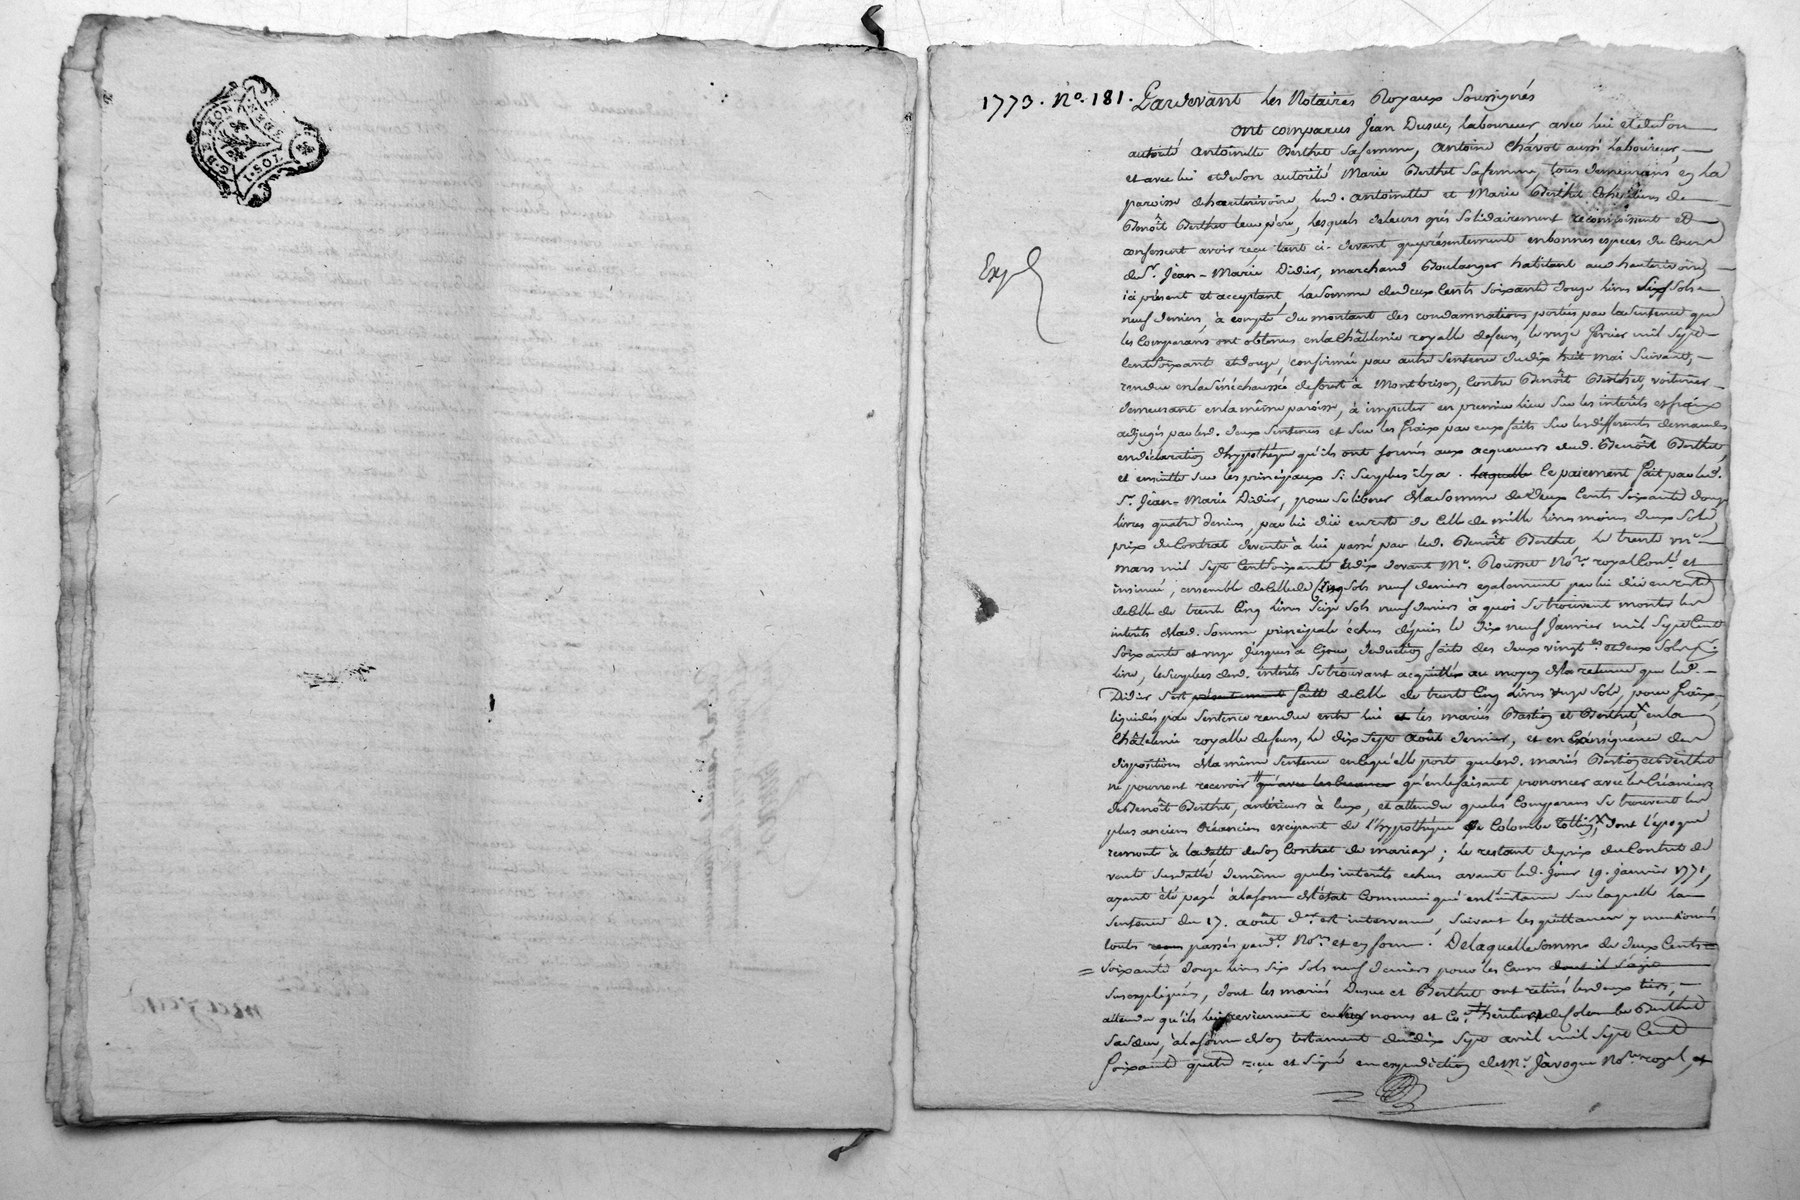 G. DE LYON
1. SOL
1773. No. 181. Pardevant les Notaires Royaux Soussignés
ont comparus Jean Dusuc, laboureur, avec lui et de son
autorité Antoinette Berthet sa femme, Antoine Chavot aussi laboureur,
et avec lui et de son autorité Marie Berthet sa femme, tous demeurans en la
paroisse d'hauterivoire, lesd. Antoinette et Marie Berthet héritieres de
Benoît Berthet leur père, lesquels de leurs grés solidairement reconoissent et
confessent avoir reçu tant ci-devant que présentement en bonnes especes du cours
du Sr. Jean-Marie Didier, marchand Boulanger habitant aud. hauterivoire
Exp
ici présent et acceptant, la somme de deux Cents soixante douze livres six sols
neuf deniers, à compte du montant des condamnations portées par la sentence que
les Comparans ont obtenue en la Châtelenie royalle de feurs, le onze février mil sept
Cent soixante et douze, confirmée par autre sentence du dix huit mai suivant,
rendue en la sénéchaussée de forest à Montbrison, contre Benoît Berthet, voiturier
demeurant en la même paroisse, à imputer en premier lieu sur les intérêts et fraix
adjugés par lesd. deux sentences et sur les fraix par eux faits sur les différentes demandes
en déclaration d'hypothéque qu'ils ont formés aux acquereurs dud. Benoît Berthet,
et ensuitte sur les principaux si surplus il y a. laquelle le paiement fait par led.
Sr. Jean-Marie Didier, pour se liberer de la somme de deux Cents soixante douze
livres quatre deniers, par lui düe en reste de celle de mille livres moins deux sols
prix du Contrat de vente à lui passé par led. Benoît Berthet le trente un
mars mil sept cent soixante et dix devant Me. Rousset No.re royal Con.lé et
insinué, ensemble de celle de cinq sols neuf deniers egalement par lui düe en reste
de celle de trente cinq livres seize sols neuf deniers à quoi se trouvent monter les
intérêts de lad. somme principale échus depuis le dix neuf Janvier mil sept cent
soixante et onze jusques à ce jour, déduction faite des deux vingt.es et deux sols p.r
livre, le surplus desd. intérêts se trouvant acquittés au moyen de la retenue que led.
Didier s'est présentement faitte de celle de trente cinq livres onze sols, pour fraix
liquidés par sentence rendue entre lui et les mariés Bastion et Berthet, en la
Châtelenie royalle de feurs, le dix sept août dernier, et en conséquence des
dispositions de la même sentence en lequ'elle porte que lesd. mariés Bastion et Berthet
ne pourront recevoir qu'avec les créances qu'en le faisant prononcer avec les Créanciers
de Benoît Berthet, antérieurs à eux, et attendu que les Comparans se trouvent les
plus anciens Créanciers excipant de l'hypothéque de Colombe Tollin, dont l'époque
remonte à la datte de son Contrat de mariage; le restant du prix du Contrat de
vente susdatté de même que les intérêts echus avant led. jour 19. janvier 1771,
ayant été payé à la forme de l'état Communiqué en l'instance sur laquelle la
sentence du 17. août d.er est intervenue, suivant les quittances y mentionnés
touts reçu passés par d.t No.res et en forme. De laquelle somme de deux Cents
soixante douze livres six sols neuf deniers pour les causes dont il s'agit
susexpliquées, dont les mariés Dusuc et Berthet ont retirés les deux tiers,
attendu qu'ils leur reviennent en leurs noms et co.heritiers de Colombe Berthet
sa sœur, à la forme de son testament du dix sept avril mil sept cent
soixante quatre reçu et signé en expédition de Me. Javogue No.re royal, et